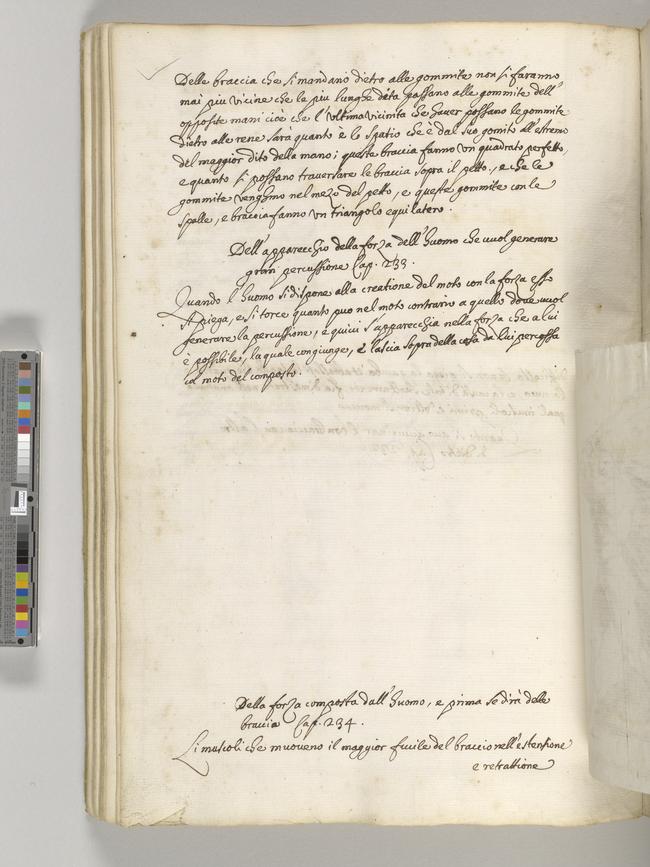 Delle braccia che si mandano dietro alle gommite non si faranno
mai piu vicine che le piu lunghe dita passano alle gommite dell'
opposite mani cioè che l'ultima vicinita che hauer possano le gommite
dietro alle rene sarà quanto è lo spatio che è dal suo gomito all'estremo
del maggior dito della mano; queste braccia fanno un quadrato perfetto,
e quanto si possano traversare le braccia sopra il petto, e che le
gommite venghino nel mezo del petto, e queste gommite con le
spalle, e braccia fanno un triangolo equilatero.
Dell'apparecchio della forza dell'huomo che vuol generare
gran percussione Cap. 233.
Quando l'huomo si dispone alla creatione del moto con la forza esso
si piega, e si torce quanto puo nel moto contrario a quello dove vuol
generare la percussione, e quivi s'apparecchia nella forza che a lui
è possibile, la quale congiunge, e lascia sopra della cosa da lui percossa
col moto del composto.
Della forza composta dall'huomo, e prima se dirà delle
braccia Cap. 234.
Li muscoli che muoveno il maggior fucile del braccio nell'estensione
e retrattione